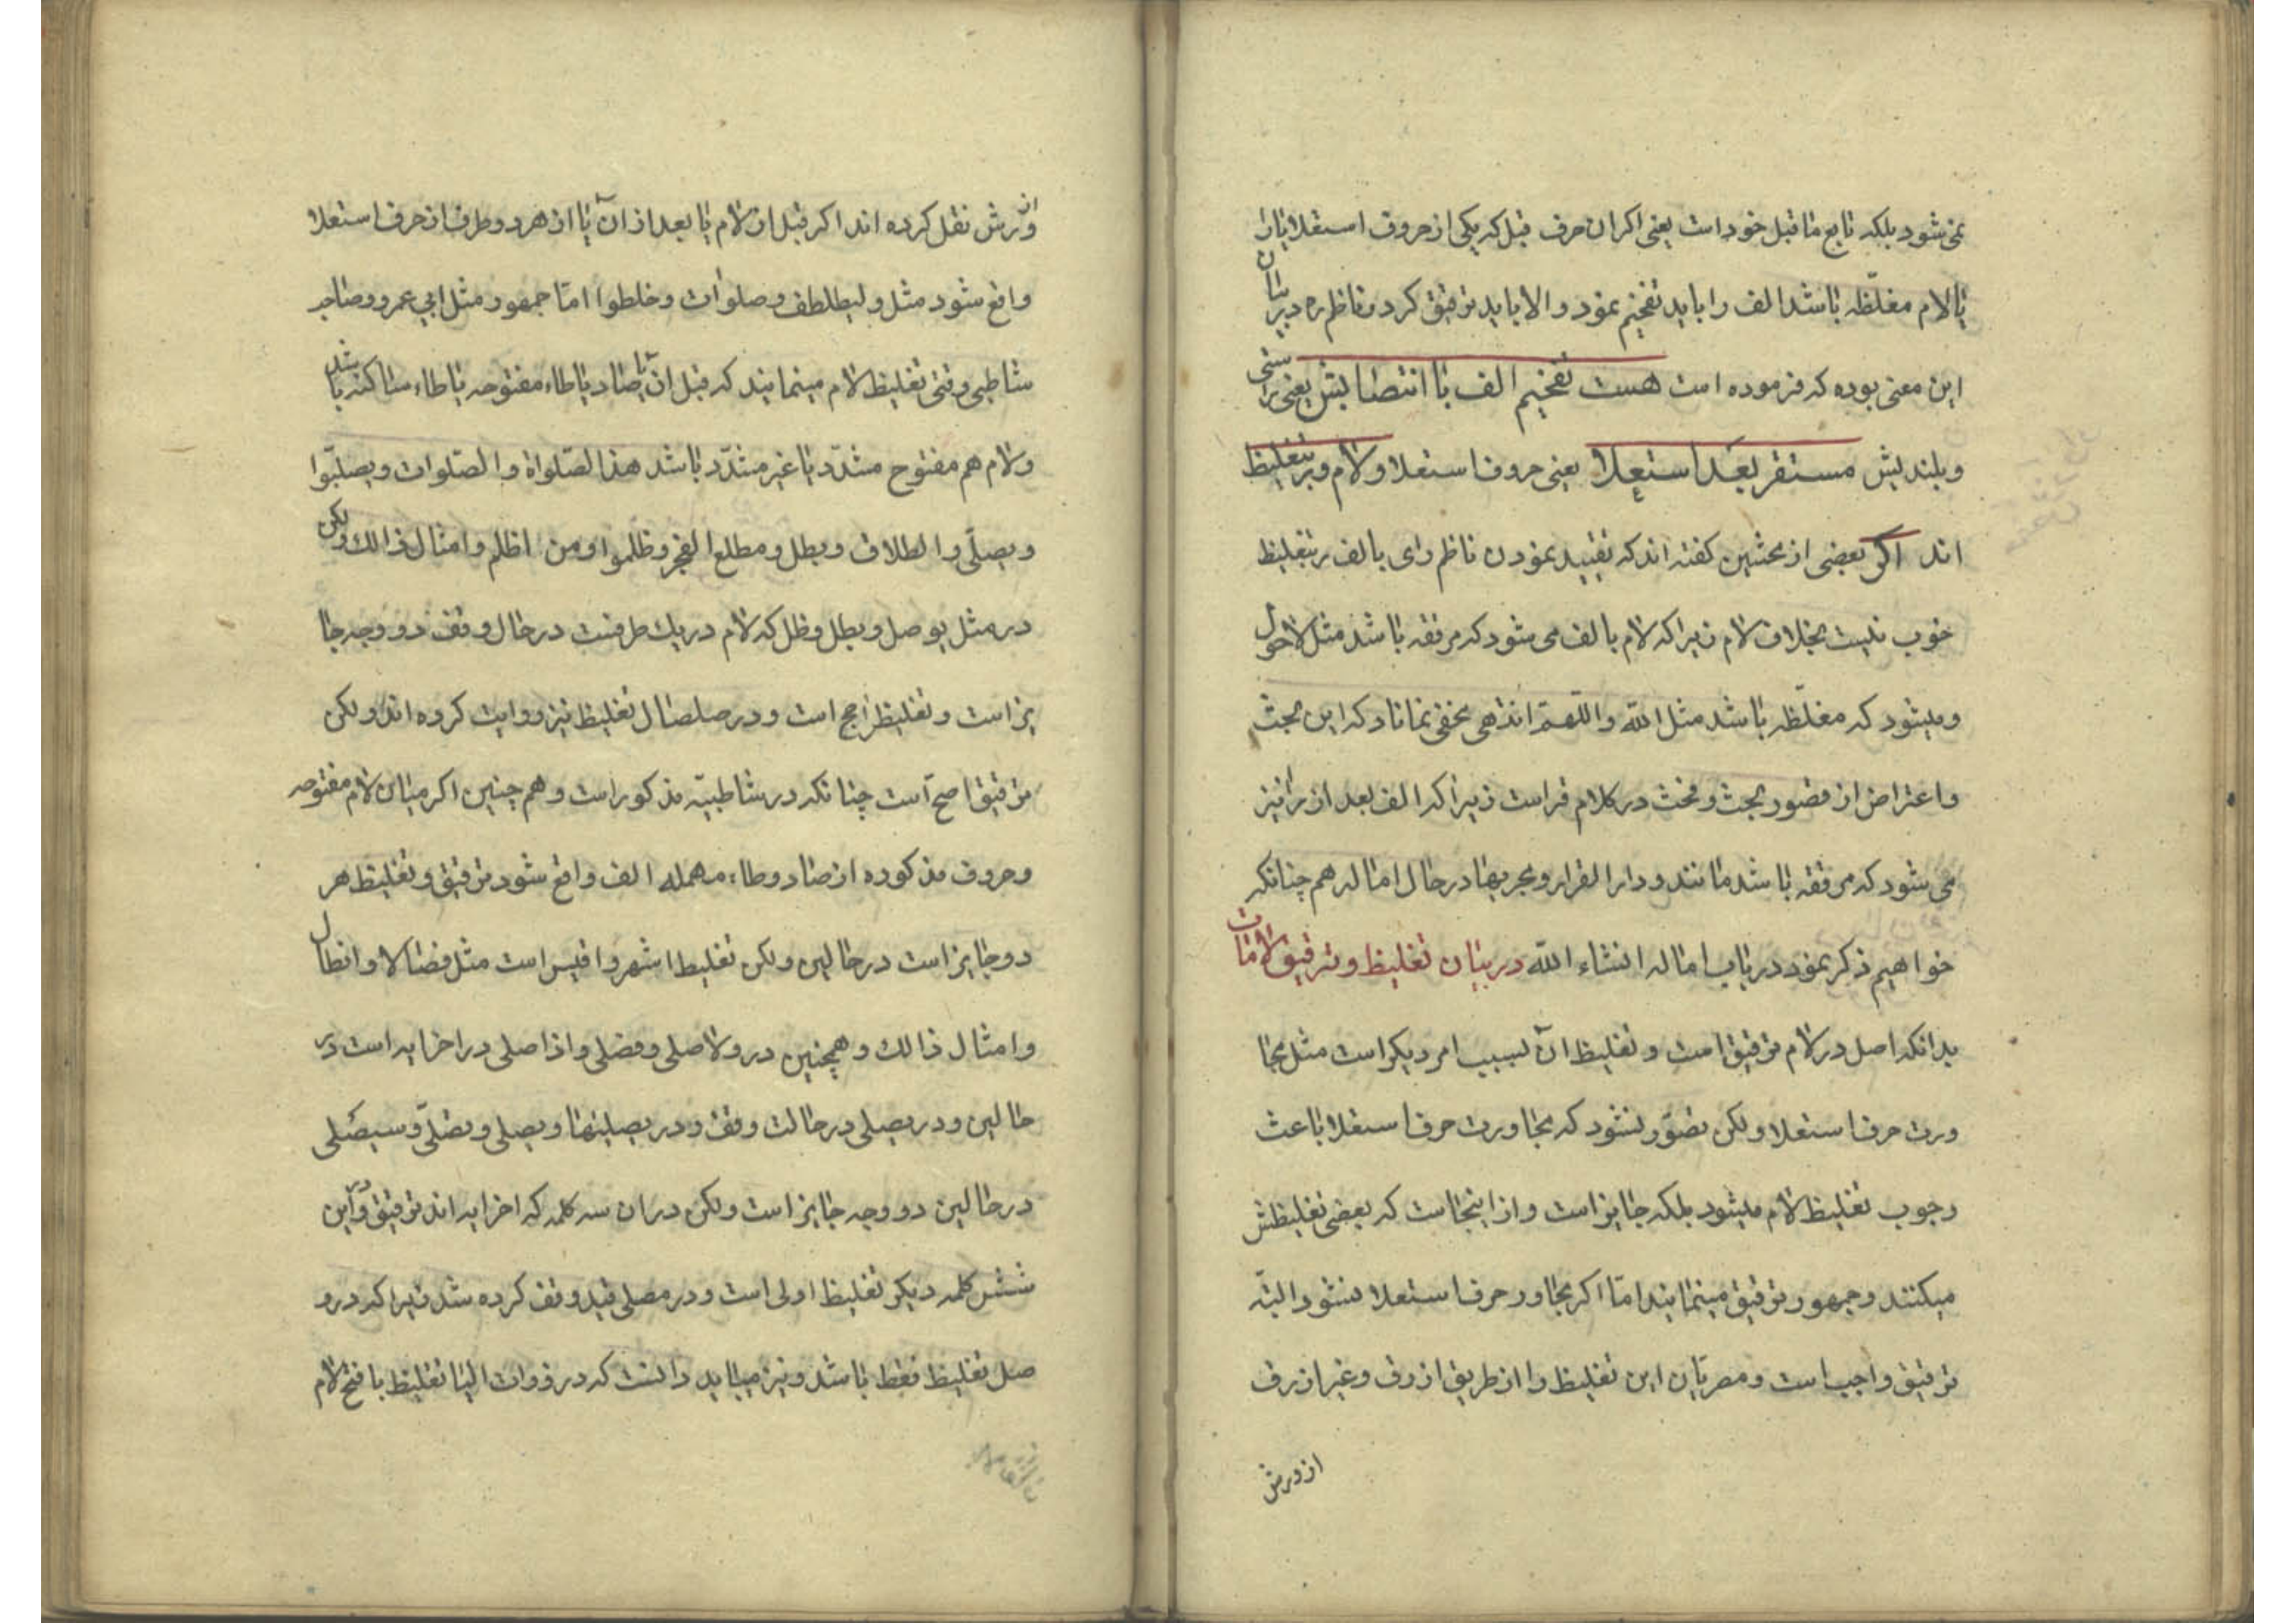 نمی‌شود بلکه تابع ما قبل خود است یعنی اکر ان حرف قبل که یکی از حروف استعلا یا را
یا لام مغلّظه باشد الف را باید تفخیم نمود والا باید ترقیق کرد و ناظم ره در بیان
این معنی بوده که فرموده است هست تفخیم الف با انتصابش یعنی براستی
و بلندیش مستقر بعد استعلا یعنی حروف استعلا و لام و بر بتغلیظ
اند اکر بعضی از محشین کفته اند که تقیید نمودن ناظم رای با الف بر بتغلیظ
خوب نیست بخلاف لام زیرا که لام با الف می شود که مرققه باشد مثل لاحول
و میشود که مغلّظه باشد مثل الله و اللّهمّ انتهی مخفی نماناد که این بحث
و اعتراض از قصور بحث و فحث در کلام قراست زیرا که الف بعد از را نیز
می شود که مرققه باشد مانند و دار القرار و مجریها در حال اماله هم چنانکه
خواهیم ذکر نمود در باب اماله انشاء الله در بیان تغلیظ و ترقیق لامات
بدانکه اصل در لام ترقیق است و تغلیظ آن بسبب امر دیکر است مثل مجا
ورت حرف استعلا ولکن تصوّر نشود که مجاورت حرف استعلا باعث
وجوب تغلیظ لام میشود بلکه جایز است و از اینجاست که بعضی تغلیظش
میکنند و جمهور ترقیق مینمایند امّا اکر مجاور حرف استعلا نشود البتّه
ترقیق واجب است و مصریان این تغلیظ را از طریق ازرق و غیر ازرق
از ورش
از ورش نقل کرده اند اکر قبل از لام یا بعد از آن یا از هر دو طرف از حرف استعلا
واقع شود مثل ولیطلطف و صلوات و خلطوا امّا جمهور مثل ابی عمرو و صاحب
شاطبی وقتی تغلیظ لام مینمایند که قبل ان یا صاد یا طاء مفتوحه یا طاء ساکنه باشد
و لام هم مفتوح مشدّد یا غیر مشدّد باشد هذا لصّلواة و الصّلوات و یصلبّوا
و یصلّی و الطلاق و بطل و مطلع الفجر و ظلموا و من اظلم و امثال ذالك ولکن
در مثل یوصل و بطل و ظل که لام در یك طرفست در حال وقف دو وجه جا
یز است و تغلیظ راجح است و در صلصال تغلیظ نیز روایت کرده اند ولکن
ترقیق اصحّ است چنانکه در شاطبیّه مذکور است و هم چنین اکر میان لام مفتوحه
و حروف مذکوره از صاد و طاء مهمله الف واقع شود ترقیق و تغلیظ هر
دو جایز است در حالین ولکن تغلیظ اشهر و اقیس است مثل فصالا و افطال
و امثال ذالك و همچنین در ولا صلی و فصلی و اذا صلی در اخر ایه است در
حالین و در یصلی در حالت وقف و در یصلیها و یصلی و تصلّی و سیصلی
در حالین دو وجه جایز است ولکن در ان سه کلمه که اخر ایه اند ترقیق و در این
شش کلمه دیکر تغلیظ اولی است و در مصلی قید وقف کرده شد زیرا که در و
صل تغلیظ فقط باشد و نیز میباید دانست که در ذوات الیا تغلیظ با فتح لام